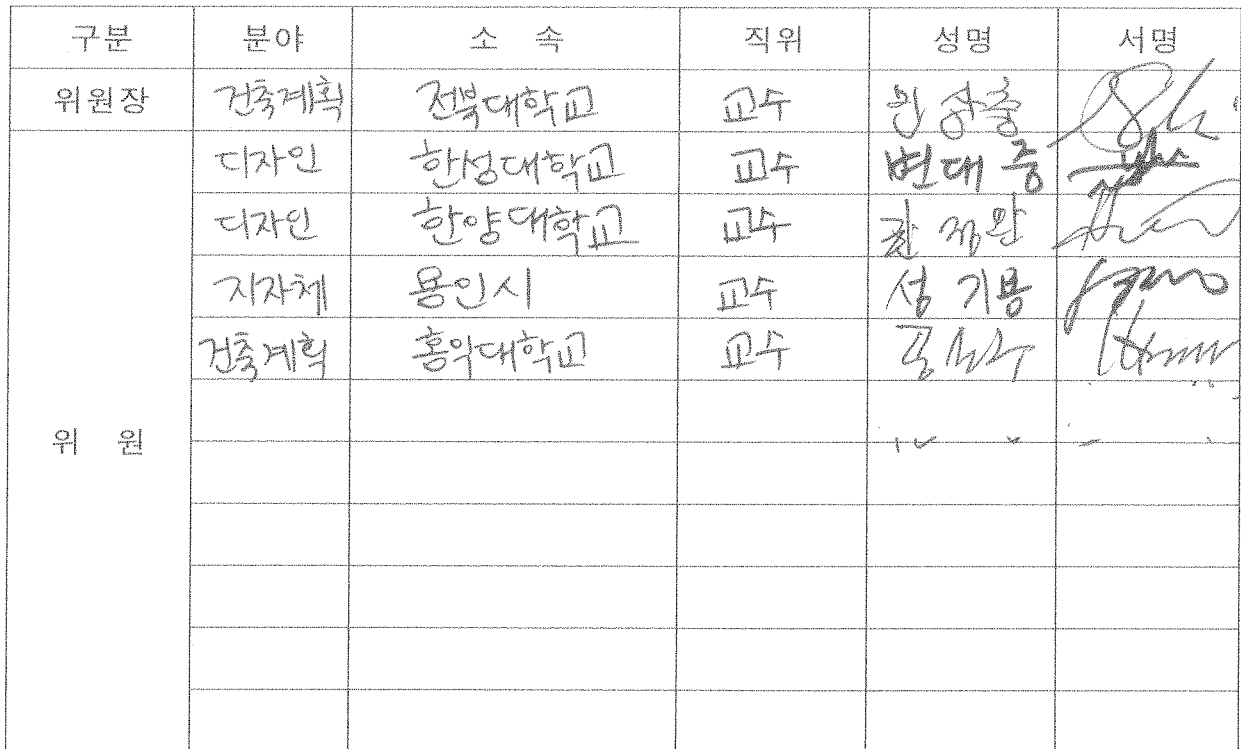 구분 분야 소 속 직위 성명 서명
위원장 건축계획 전북대학교 교수
디자인 한성대학교 교수 변대중
디자인 한양대학교 교수
지자체 용인시 교수 성기용
건축계획 홍익대학교 교수
위 원